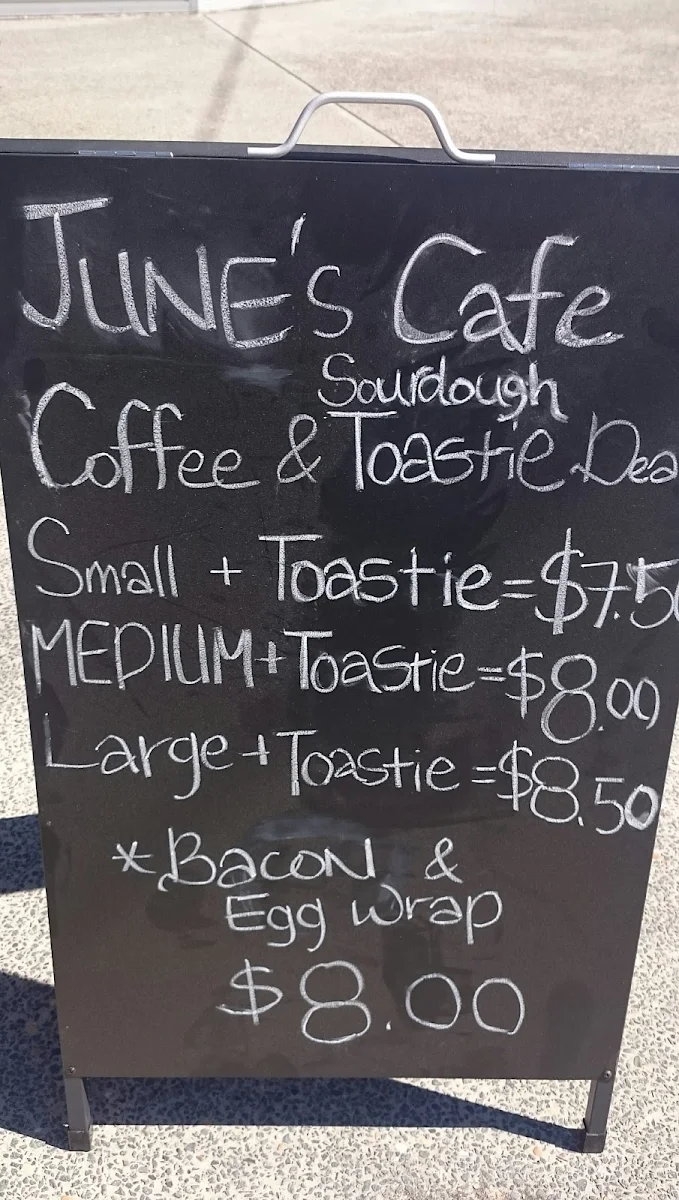 JUNE's Cafe
Sourdough
Coffee & Toastie Dea
Small + Toastie = $7.50
MEDIUM + Toastie = $8.00
Large + Toastie = $8.50
* Bacon &
Egg wrap
$8.00